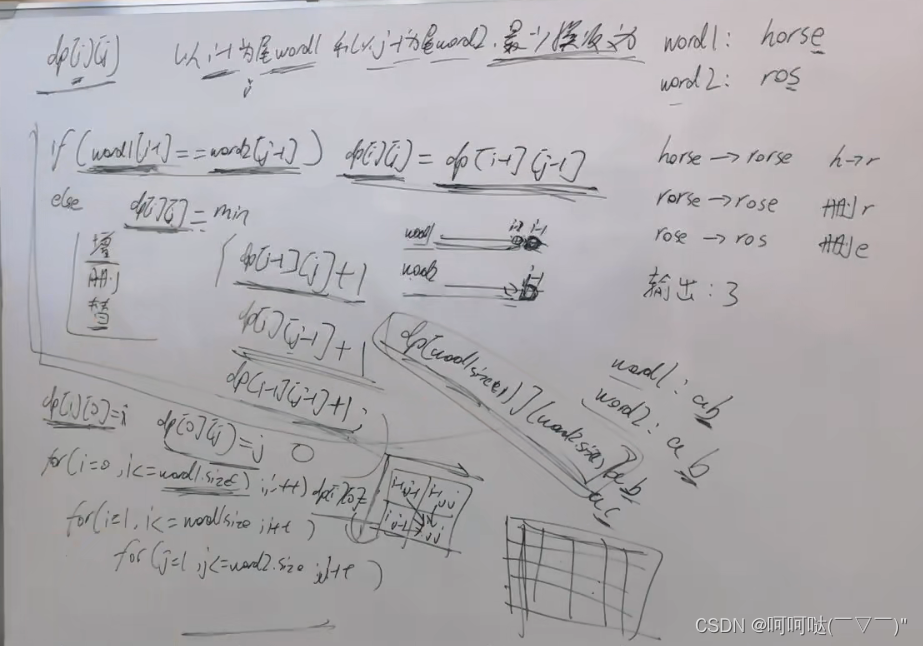 dp[i][j] 以 i-1 为尾 word1 和以 j-1 为尾 word2, 最少操作次数为
word1: horse
word2: ros
if (word1[i-1] == word2[j-1]) dp[i][j] = dp[i-1][j-1]
else dp[i][j] = min
增
删
替
dp[i-1][j]+1
dp[i][j-1]+1
dp[i-1][j-1]+1;
word1
word2
horse → rorse h→r
rorse → rose 删r
rose → ros 删e
输出: 3
dp[word1.size()][word2.size()]
word1: ab
word2: a b
ab
ac
dp[i][0]=i
dp[0][j]=j 0
for(i=0, i<=word1.size(), i++) dp[i][0]=i
for(i=1, i<=word1.size, i++)
for(j=1, j<=word2.size, j++)
i-1,j-1 i-1,j
i,j-1 i,j
CSDN @呵呵哒(￣▽￣)"